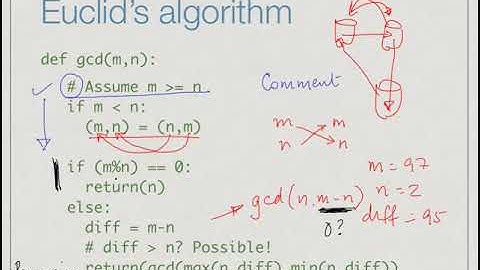 Euclid's algorithm
def gcd(m,n):
# Assume m >= n
if m < n:
(m,n) = (n,m)
if (m%n) == 0:
return(n)
else:
diff = m-n
# diff > n? Possible!
return(gcd(max(n,diff),min(n,diff))
Comment
m m
n n
m = 97
n = 2
diff = 95
gcd(n,m-n)
0?